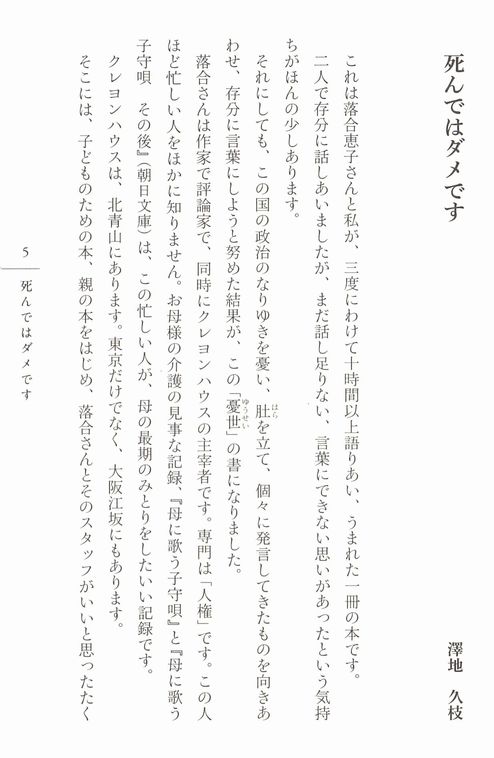 死んではダメです
澤地　久枝
これは落合恵子さんと私が、三度にわけて十時間以上語りあい、うまれた一冊の本です。
二人で存分に話しあいましたが、まだ話し足りない、言葉にできない思いがあったという気持
ちがほんの少しあります。
それにしても、この国の政治のなりゆきを憂い、肚を立て、個々に発言してきたものを向きあ
はら
わせ、存分に言葉にしようと努めた結果が、この「憂世」の書になりました。
ゆうせい
落合さんは作家で評論家で、同時にクレヨンハウスの主宰者です。専門は「人権」です。この人
ほど忙しい人をほかに知りません。お母様の介護の見事な記録、『母に歌う子守唄』と『母に歌う
子守唄　その後』(朝日文庫)は、この忙しい人が、母の最期のみとりをしたいい記録です。
クレヨンハウスは、北青山にあります。東京だけでなく、大阪江坂にもあります。
そこには、子どものための本、親の本をはじめ、落合さんとそのスタッフがいいと思ったたく
5
死んではダメです